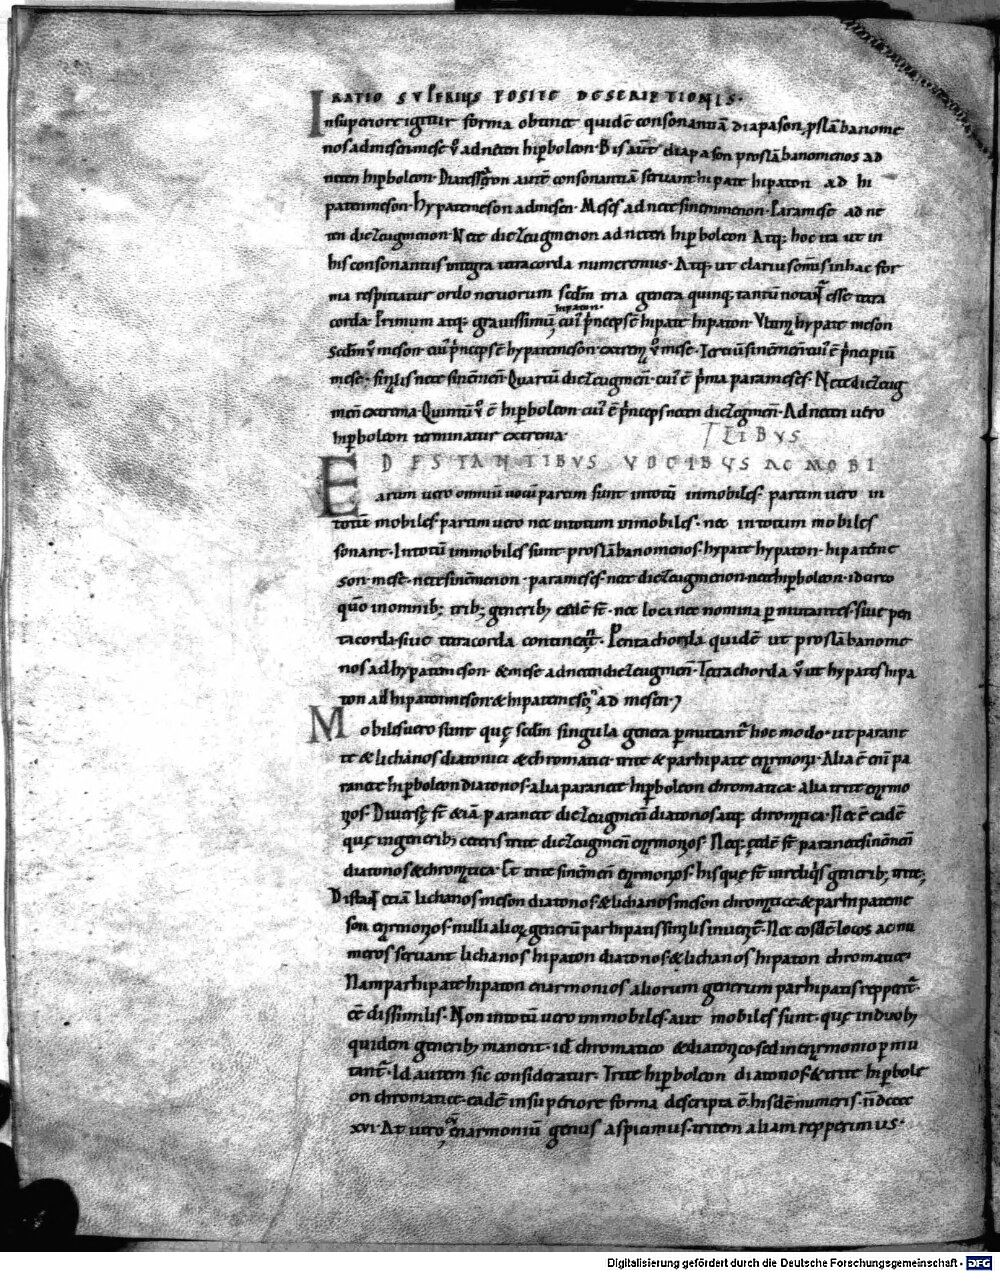 RATIO SVPERIVS POSITE DESCRIPTIONIS.
Insuperiore igitur forma obtinet quidē consonantiā diapason, pslābanome
nos ad mesen mese v̊ ad neten hiꝑboleon. Bis aut̄ diapason proslābanomenos ad
neten hiꝑboleon. autē consonantiā seruant hipate hipaton ad hi
paten meson. Hypate meson ad mesen. Meses ad nete sinēmenon. Paramese ad ne
ten diezeugmenon. Nete diezeugmenon ad neten hiꝑboleon Atq; hoc ita ut in
his consonantiis integra tetracorda numeremus. Atq; ut clarius omīs in hac for
ma respiciatur ordo neruorum scdm̄ tria genera quinq; tantū esse tetra
hipaton.
corda. Primum atq; grauissimū, cui' p̄nceps ē hipate hipaton. hypate meson
Scdm̄ v̊ meson. cui' p̄nceps ē hypate meson. v̊ mese. Terciū sinēmen̄ cui' ē p̄ncipiū
mese. nete sinēmen̄. Quartū diezeugmen̄. cui' ē p̄ma parameses. Nete diezeug
men̄ extrema. Quintū v̊ ē hiꝑboleon. cui' ē p̄nceps neten diezegmen̄. Ad neten uero
hiꝑboleon terminatur extrema.
TLIBVS
DE STANTIBVS VOCIBVS AC MOBI
Earum uero omniū uocū partim sunt intotū inmobiles. partim uero in
totū mobiles. partim uero nec intotum inmobiles. nec intotum mobiles
sonant. Intotū immobiles sunt proslābanomenos. hypate hypaton. hipate me
son. mese. nete sinēmenon. parameses. nete diezeugmenon. nete hiꝑboleon. idcirco
quō in omnib; trib; generib; eadē st̄. nec loca nec nomina ꝑmutantes. siue pen
tacorda siue tetracorda Pentachorda quidē ut proslābanome
nos ad hypatemeson. & mese ad neten diezeugmen̄. Tetrachorda v̊ ut hypates hipa
ton ad hipaton meson. & hipate ad mesen.
Mobiles uero sunt quę scdm̄ singula genera ꝑmutant̄ hoc modo. ut parane
te & lichanos diatonici & chromatici. trite & parhipate Alia ē en̄i pa
ranete hiꝑboleon diatonos. alia paranete hiꝑboleon chromatica. alia trite
Diuersę st̄ & iā paranete diezeugmen̄ diatonos atq; Nec ē eadē
quę in generib; ceteris trite diezeugmen̄ Neq; eędē st̄ paranete sinēmen̄
diatonos & Et trite sinēmen̄ his quę st̄ in reliq̊s generib; trite;
Distat etiā lichanos meson diatonos. & lichanos meson & parhipate me
son nulli alioꝝ generū parhipatis similis inuenit̄. Nec eosdē locos ac nu
meros seruant lichanos hipaton diatonos. & lichanos hipaton chromatice.
Nam parhipate hipaton enarmonios aliorum generum parhipatis repperit̄
eē dissimilis. Non intotū uero immobiles aut mobiles sunt. quę in duob;
quidem generib; manent. id ē chromatico & diatonico. sed in ꝑmu
tant̄. Id autem sic consideratur. Trite hiꝑboleon diatonos. & trite hiꝑbole
on chromatice. eadē in supériore forma descripta ē. hisdē numeris.
xvi. At uero si enarmoniū genus aspiciamus. tritem aliam repperimus.
Digitalisierung gefördert durch die Deutsche Forschungsgemeinschaft - DFG